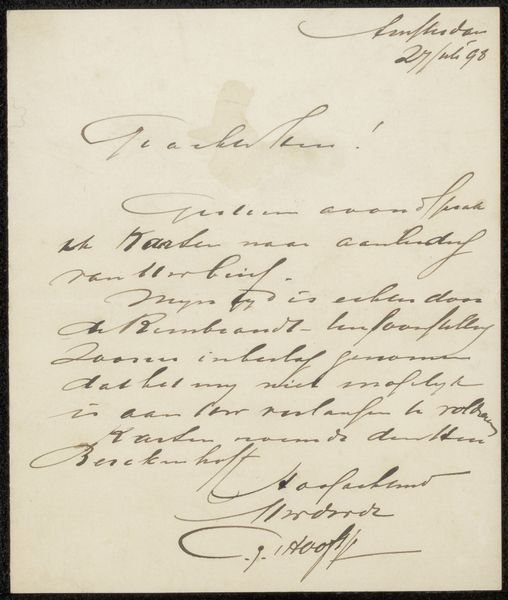 Amsterdam
27 Juli 98
Geachte Heer!
Gisteren avond sprak
ik Karsten naar aanleiding
van Uw brief.
Mijn tijd is echter door
de Rembrandt-tentoonstelling
zoozeer in beslag genomen
dat het mij niet mogelijk
is aan Uw verlangen te voldoen
Karsten noemde den Heer
Berckenhoff
Hoogachtend
Uw dw dr
C.G. 't Hooft